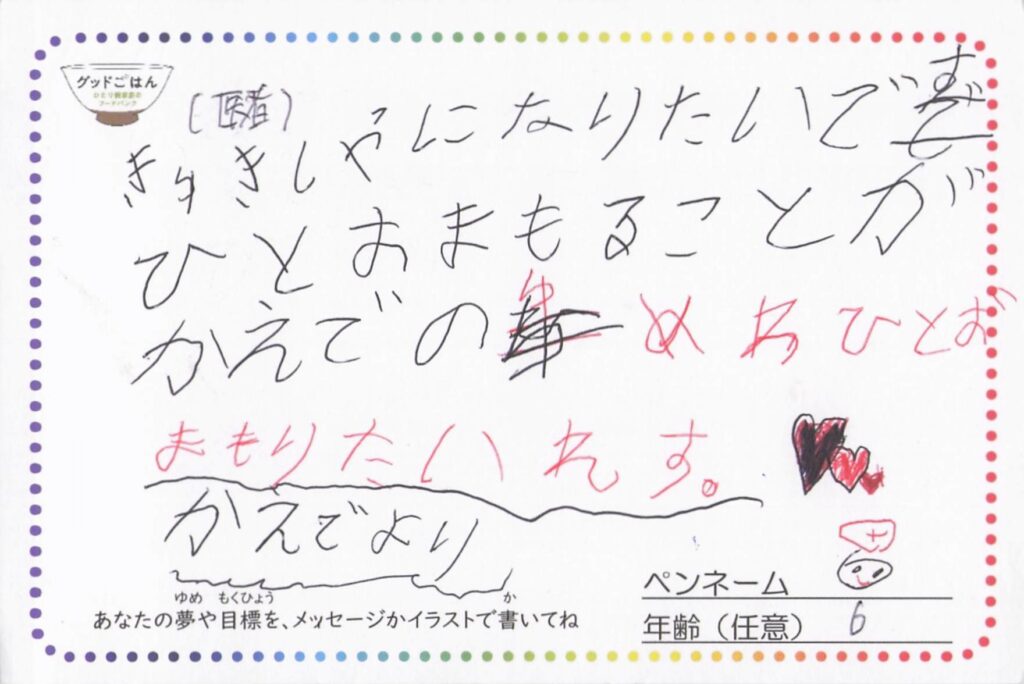 グッドごはん
ひとり親家庭の
フードバンク
(医者)
きしゃになりたいです
ひとおまもることが
かえでのゆめわひとお
まもりたいれす。
かえでより
ゆめ もくひょう か
あなたの夢や目標を、メッセージかイラストで書いてね
ペンネーム
年齢（任意） 6